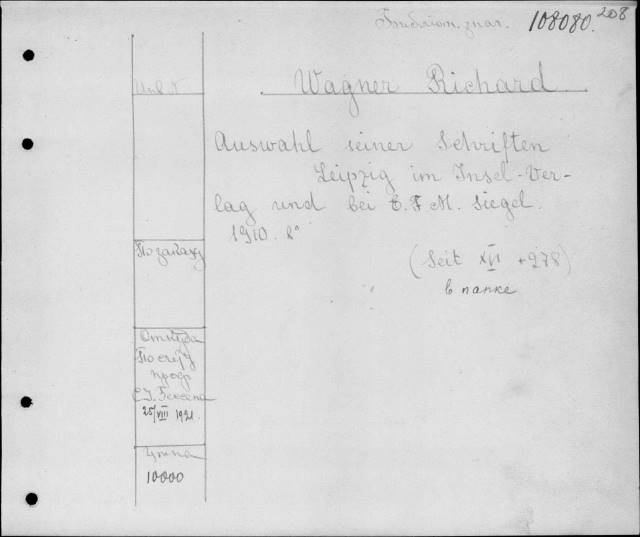 Библиот. знач. 108080. 208
Wagner Richard
Auswahl seiner Schriften
Leipzig im Insel-Ver-
lag und bei C. F. M. Siegel.
1910. 8°
(Seit XVI + 278)
в папке
По заказу
Откуда
По счету
проф
25/VIII 1921.
Цена
10000